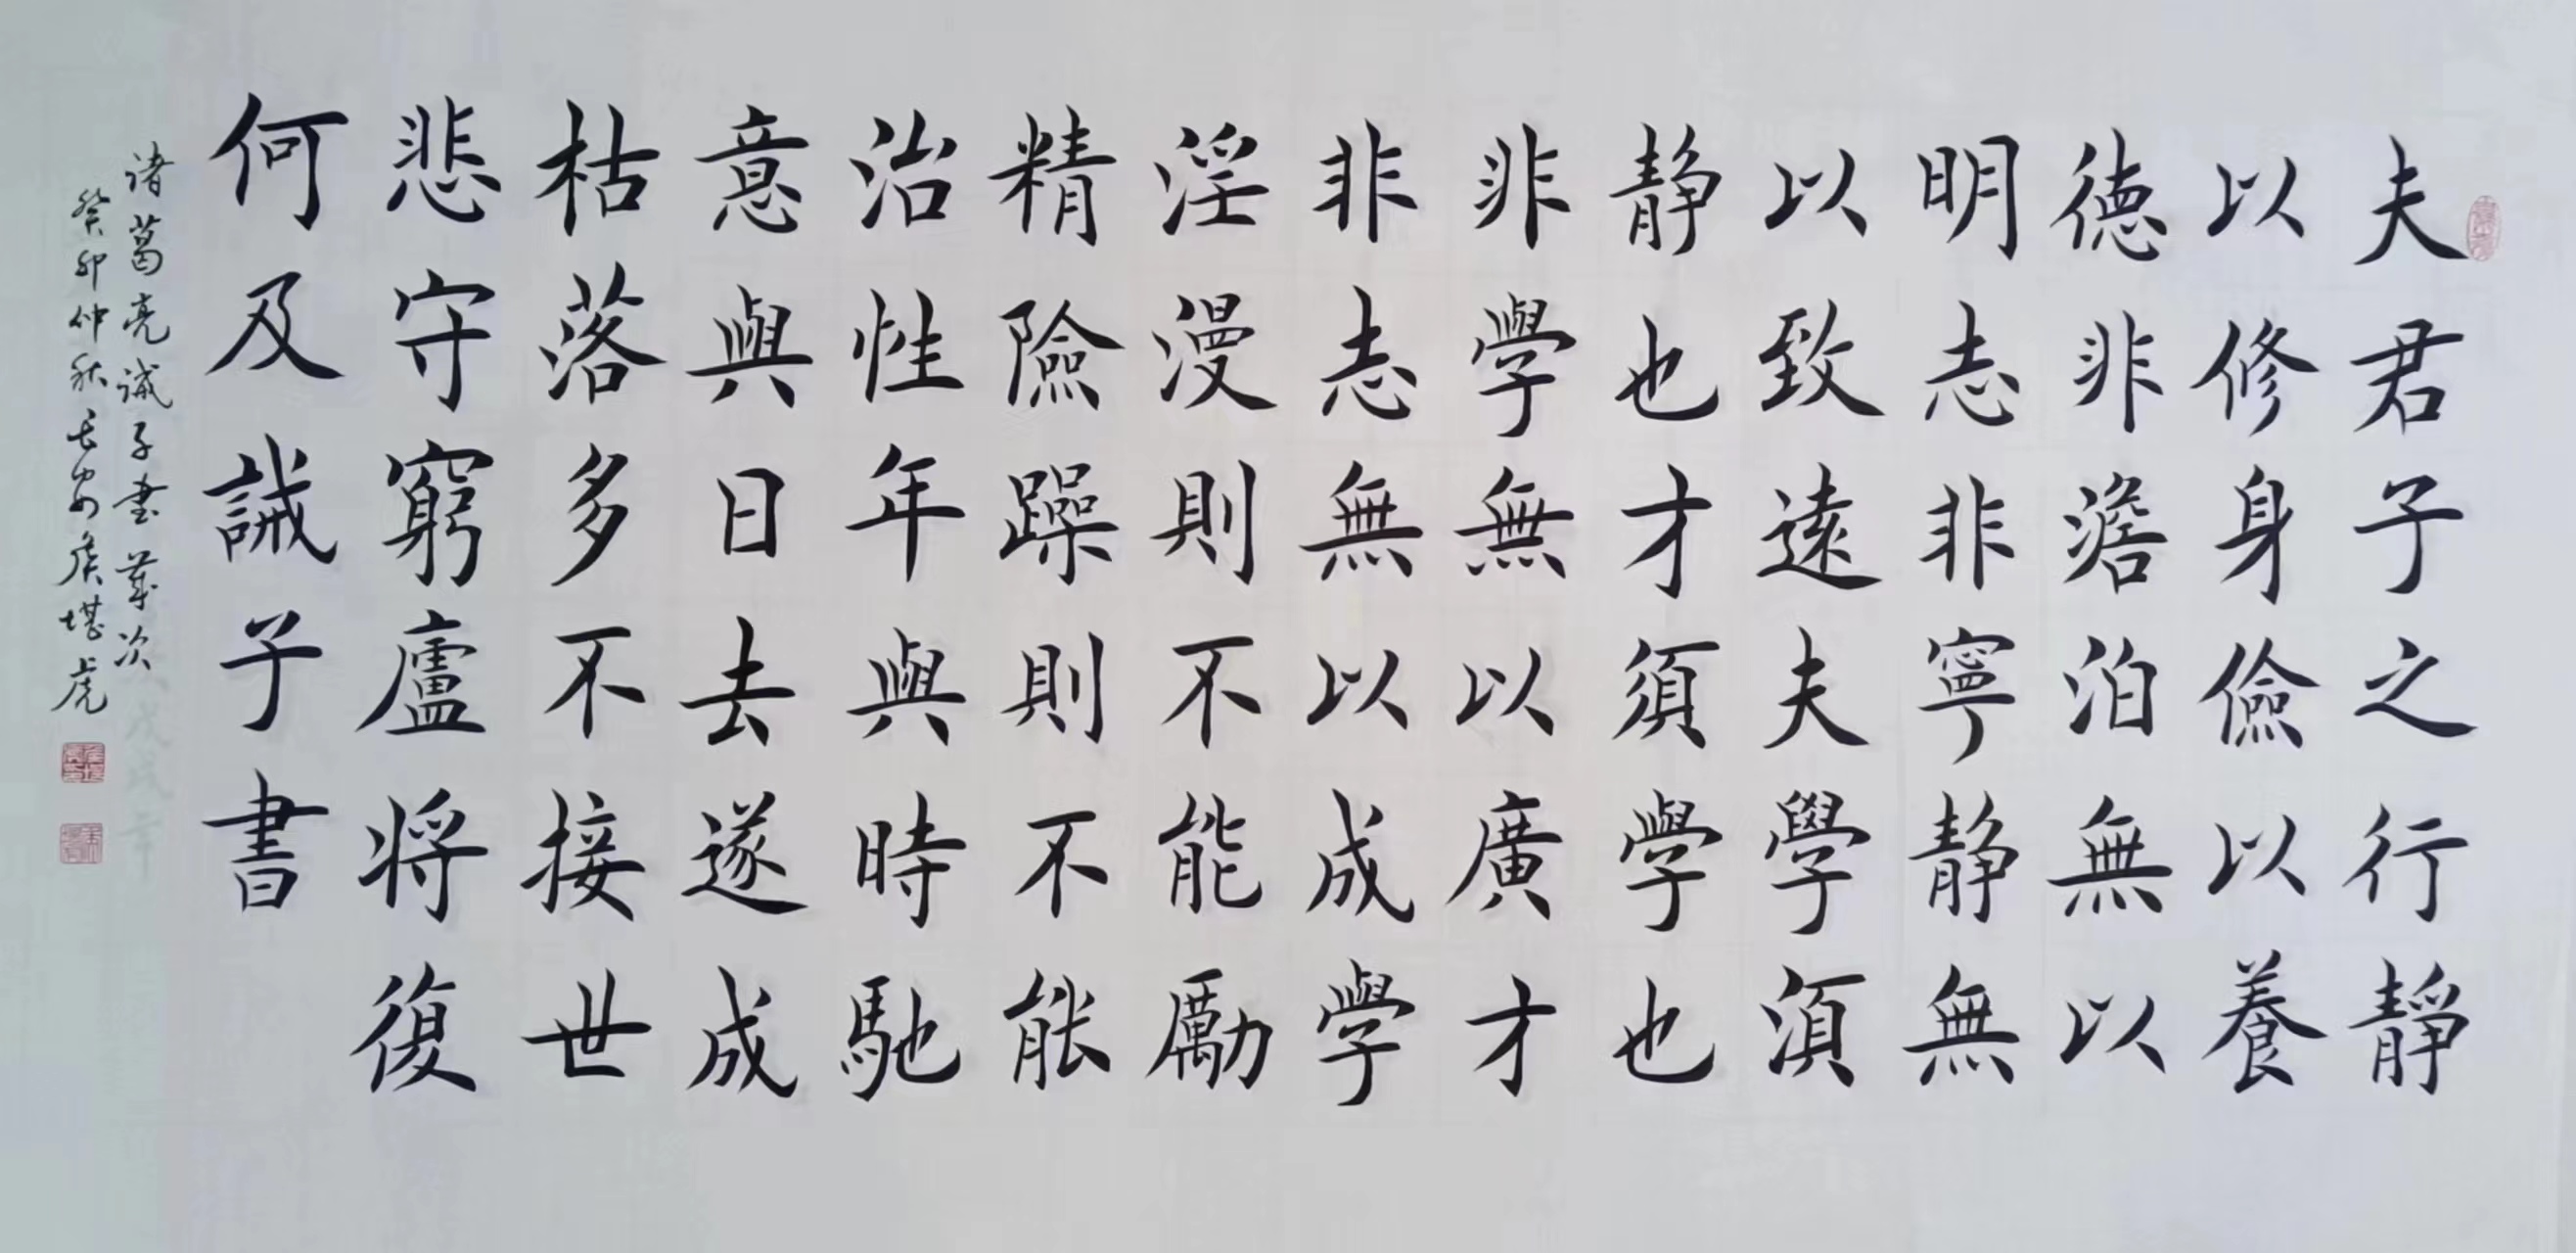 夫君子之行靜
以修身儉以養
德非澹泊無以
明志非寧静無
以致遠夫學須
静也才須學也
非學無以廣才
非志無以成學
淫漫則不能勵
精險躁則不能
治性年與時馳
意與日去遂成
枯落多不接世
悲守窮廬將復
何及誡子書
诸葛亮诫子书 岁次
癸卯仲秋长安侯堪虎